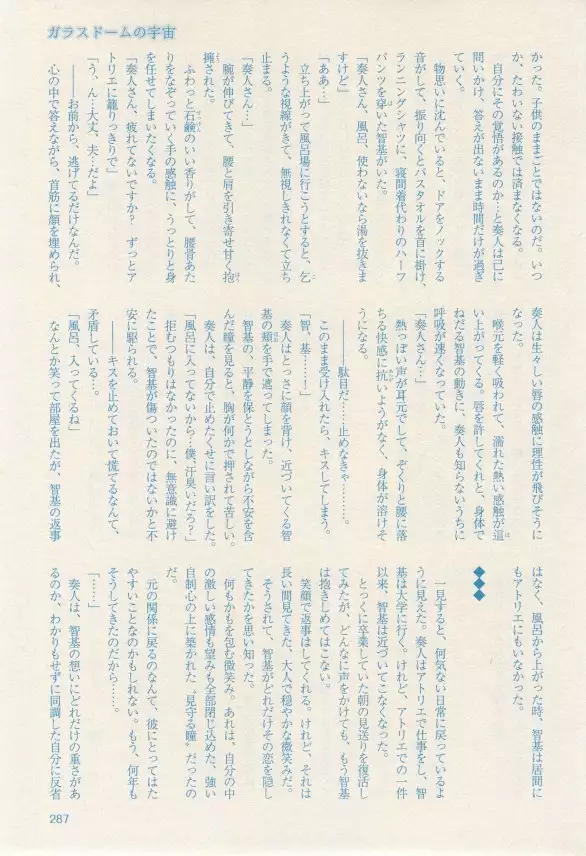 ガラスドームの宇宙
かった。子供のままごとではないのだ。いつ
か、たわいない接触では済まなくなる。
自分にその覚悟があるのか…と奏人は己に
問いかけ、答えが出ないまま時間だけが過ぎ
ていく。
物思いに沈んでいると、ドアをノックする
音がして、振り向くとバスタオルを首に掛け、
ランニングシャツに、寝間着代わりのハーフ
パンツを穿いた智基がいた。
「奏人さん、風呂、使わないなら湯を抜きま
すけど」
「ああ…」
立ち上がって風呂場に行こうとすると、乞
うような視線がきて、無視しきれなくて立ち
止まる。
「奏人さん…」
腕が伸びてきて、腰と肩を引き寄せ甘く抱
擁された。
ふわっと石鹸のいい香りがして、腰骨あた
りをなぞっていく手の感触に、うっとりと身
を任せてしまいたくなる。
「奏人さん、疲れてないですか? ずっとア
トリエに籠りっきりで」
「う、ん…大丈、夫…だよ」
――お前から、逃げてるだけなんだ。
心の中で答えながら、首筋に顔を埋められ、
奏人は生々しい唇の感触に理性が飛びそうに
なった。
喉元を軽く吸われて、濡れた熱い感触が這
い上がってくる。唇を許してくれと、身体で
ねだる智基の動きに、奏人も知らないうちに
呼吸が速くなっていた。
「奏人さん…」
熱っぽい声が耳元でして、ぞくりと腰に落
ちる快感に抗いようがなく、身体が溶けそ
うになる。
――駄目だ……止めなきゃ…………。
このまま受け入れたら、キスしてしまう。
「智、基……!」
奏人はとっさに顔を背け、近づいてくる智
基の頬を手で遮ってしまった。
智基の、平静を保とうとしながら不安を含
んだ瞳を見ると、胸が何かで押されて苦しい。
奏人は、自分で止めたくせに言い訳をした。
「風呂に入ってないから…僕、汗臭いだろ?」
拒むつもりはなかったのに、無意識に避け
たことで、智基が傷ついたのではないかと不
安に駆られる。
――キスを止めておいて慌てるなんて、
矛盾している…。
「風呂、入ってくるね」
なんとか笑って部屋を出たが、智基の返事
はなく、風呂から上がった時、智基は居間に
もアトリエにもいなかった。
◆◆◆
一見すると、何気ない日常に戻っているよ
うに見えた。奏人はアトリエで仕事をし、智
基は大学に行く。けれど、アトリエでの一件
以来、智基は近づいてこなくなった。
とっくに卒業していた朝の見送りを復活し
てみたが、どんなに声をかけても、もう智基
は抱きしめてはこない。
笑顔で返事はしてくれる。けれど、それは
長い間見てきた、大人で穏やかな微笑みだ。
そうされて、智基がどれだけその恋を隠し
てきたかを思い知った。
何もかもを包む微笑み。あれは、自分の中
の激しい感情も望みも全部閉じ込めた、強い
自制心の上に築かれた〝見守る瞳〟だったの
だ。
元の関係に戻るのなんて、彼にとってはた
やすいことなのかもしれない。もう、何年も
そうしてきたのだから……。
「……」
奏人は、智基の想いにどれだけの重さがあ
るのか、わかりもせずに同調した自分に反省
287